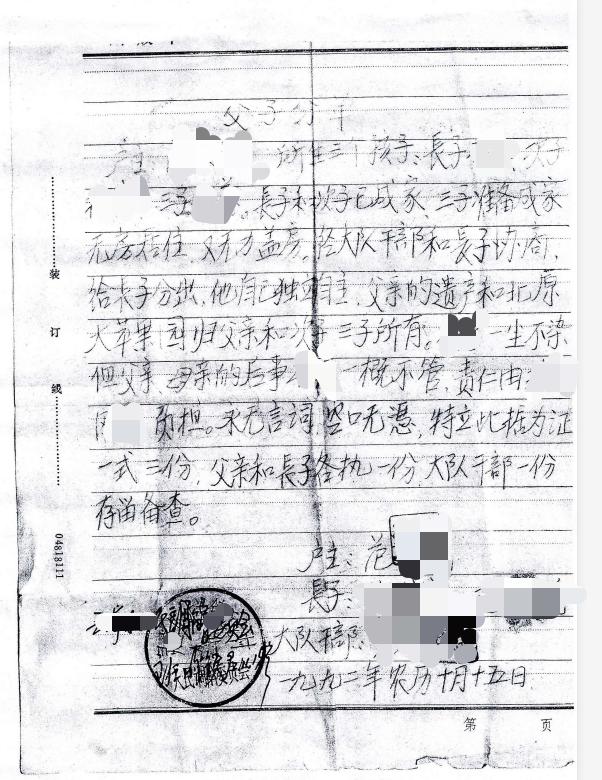 父子分单
户主 所生三个孩子、長子 、次子
三子 。長子和次子已成家、三子准备成家
无房居住，又无力盖房。经大队干部和長子协商，
给長子分出，他自己独立自主，父亲的遗产和北原
大苹果园归父亲和次子三子所有。 一尘不染
但父亲、母亲的后事 一概不管，责任由
负担。永无言词，坚口无憑，特立此据为证
一式三份，父亲和長子各执一份，大队干部一份
存留备查。
户主：范
長子：
大队干部：
一九九二年农历十月十五日
装
订
线
04818111
第 页